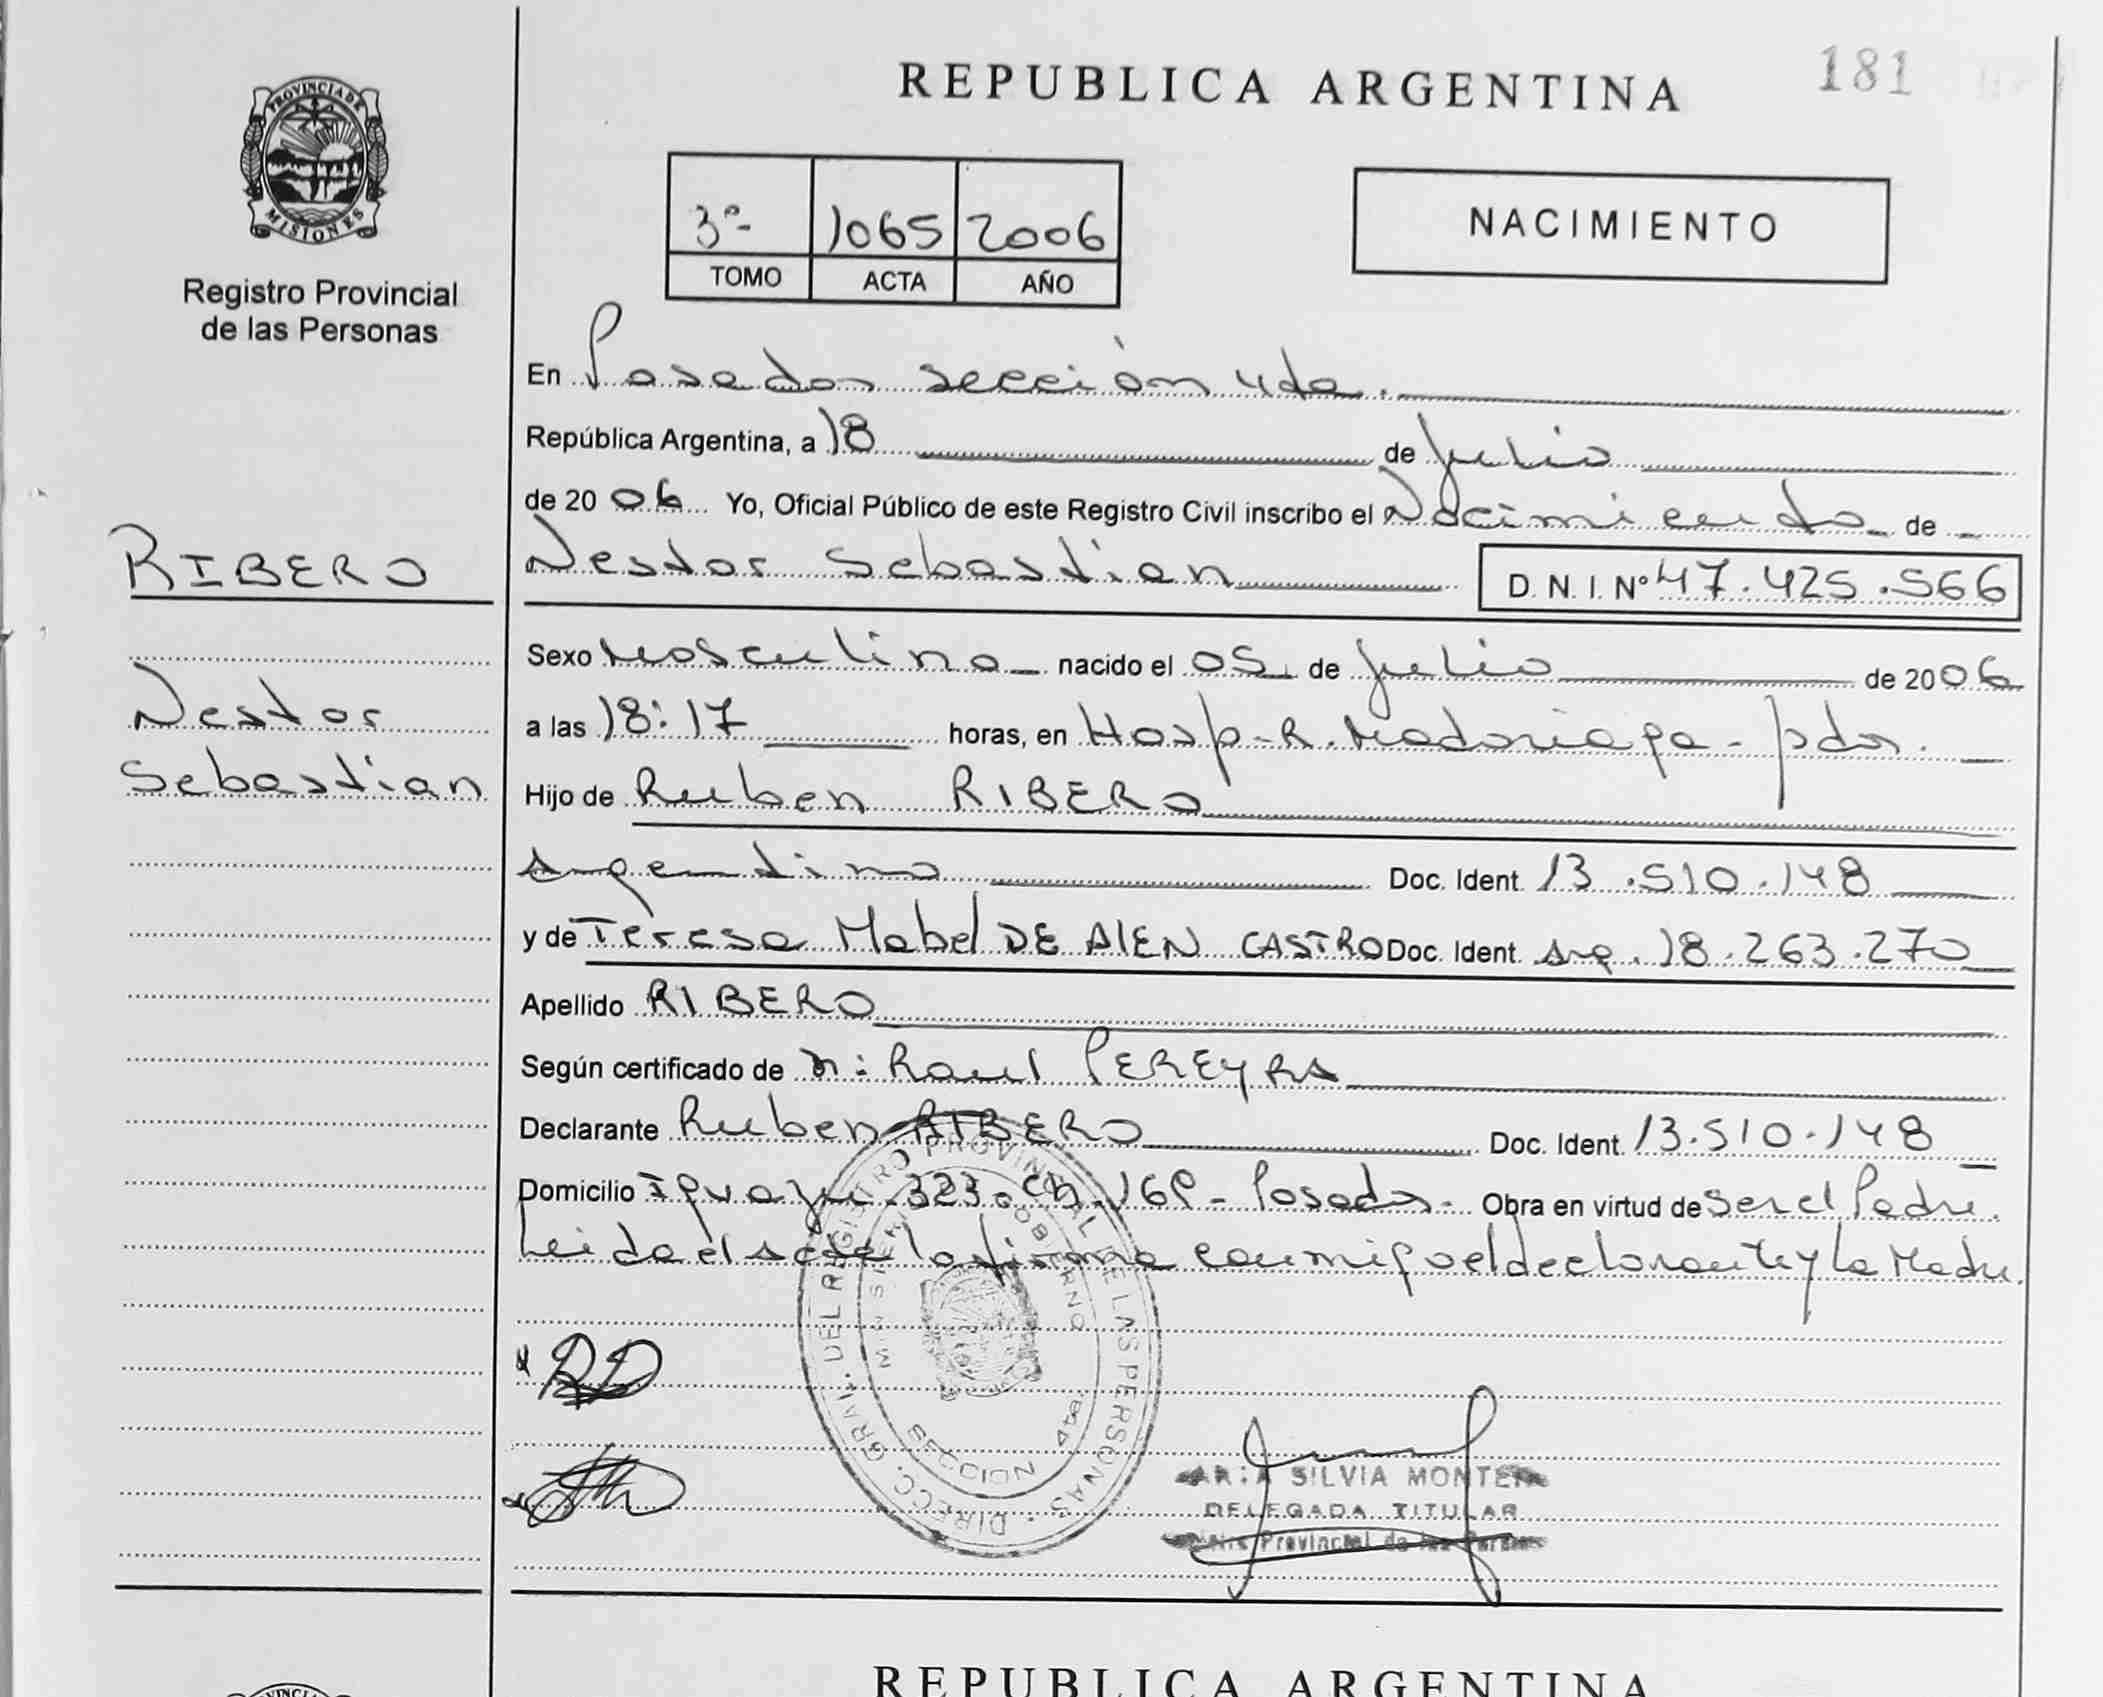 REPUBLICA ARGENTINA
181
PROVINCIA DE
MISIONES
Registro Provincial
de las Personas
3º- 1065 2006
TOMO ACTA AÑO
NACIMIENTO
En Posadas sección 4ta.
República Argentina, a 18 de Julio
de 2006 Yo, Oficial Público de este Registro Civil inscribo el Nacimiento de
RIBERO
Nestor Sebastian D. N. I. Nº 47.425.566
Sexo Masculino nacido el 05 de Julio de 2006
Nestor
a las 18:17 horas, en Hosp. R. Madariaga - pdas.
Sebastian
Hijo de Ruben RIBERO
Argentino Doc. Ident. 13.510.148
y de Teresa Mabel DE ALEN CASTRO Doc. Ident. Arg. 18.263.270
Apellido RIBERO
Según certificado de Raul PEREYRA
Declarante Ruben RIBERO Doc. Ident. 13.510.148
Domicilio 323. ch. 169 - Posadas. Obra en virtud de Ser el Padre.
Leida el acta la firma conmigo el declarante y la Madre.
DIRECC. GRAL. DEL REGISTRO PROVINCIAL DE LAS PERSONAS
MINISTERIO GOBIERNO
SECCION 4ta.
SILVIA MONTE
DELEGADA TITULAR
Provincial de las
REPUBLICA ARGENTINA